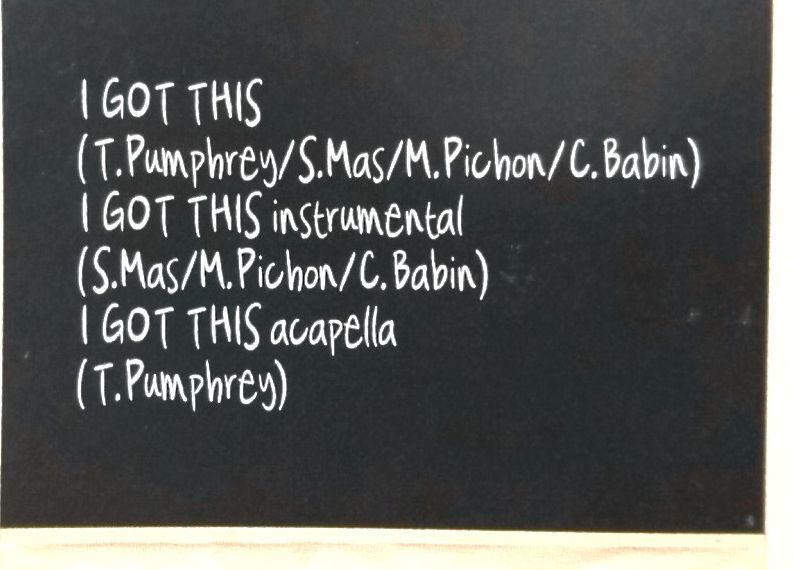 I GOT THIS
(T.Pumphrey/S.Mas/M.Pichon/C.Babin)
I GOT THIS instrumental
(S.Mas/M.Pichon/C.Babin)
I GOT THIS acapella
(T.Pumphrey)